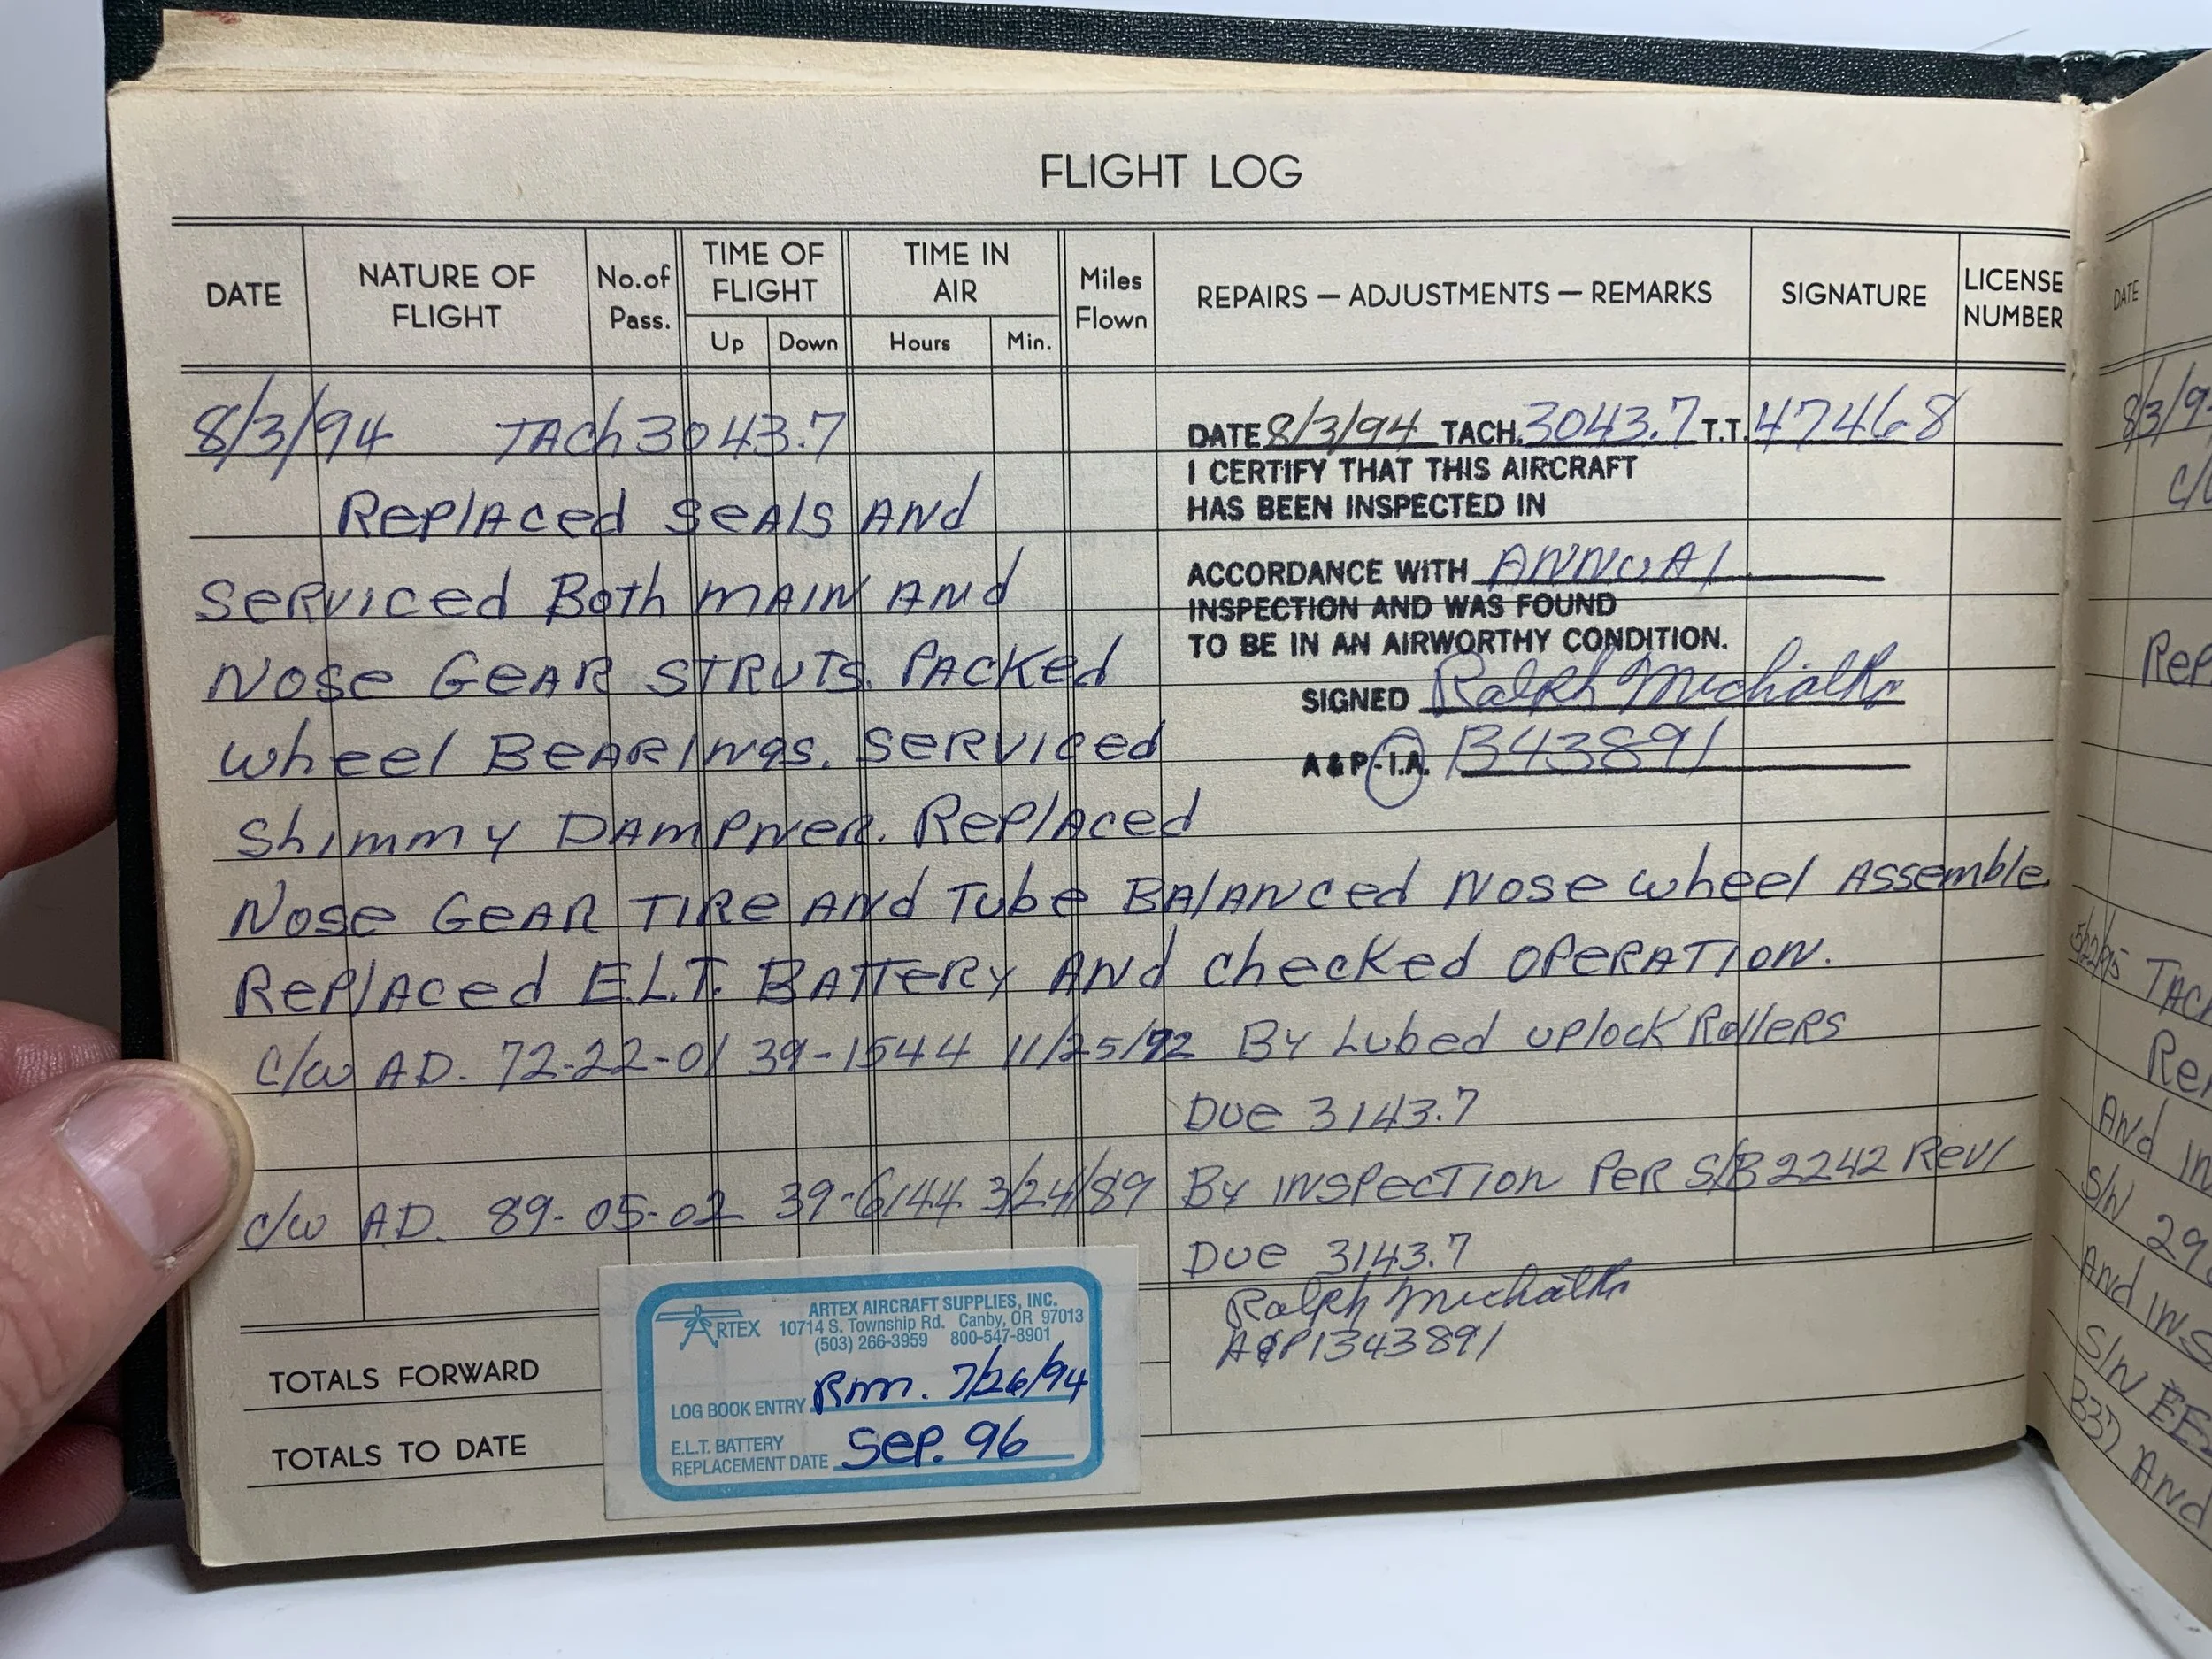 FLIGHT LOG
DATE
NATURE OF FLIGHT
No. of Pass.
TIME OF FLIGHT
Up
Down
TIME IN AIR
Hours
Min.
Miles Flown
REPAIRS — ADJUSTMENTS — REMARKS
SIGNATURE
LICENSE NUMBER
8/3/94 TACh 3043.7
Replaced seals and
serviced Both main and
Nose Gear Struts. Packed
wheel Bearings. serviced
Shimmy Dampner. Replaced
Nose Gear Tire and Tube Balanced Nose wheel Assemble.
Replaced E.L.T. Battery And checked operation.
C/W AD. 72-22-01 39-1544 11/25/92 By Lubed uplock Rollers
Due 3143.7
C/W A.D. 89-05-02 39-6144 3/24/89 By inspection Per S/B 2242 Rev/
Due 3143.7
Ralph
A&P1343891
DATE 8/3/94 TACH. 3043.7 T.T. 4746.8
I CERTIFY THAT THIS AIRCRAFT
HAS BEEN INSPECTED IN
ACCORDANCE WITH ANNUAl
INSPECTION AND WAS FOUND
TO BE IN AN AIRWORTHY CONDITION.
SIGNED Ralph
A & P-I.A. 1343891
TOTALS FORWARD
TOTALS TO DATE
ARTEX
ARTEX AIRCRAFT SUPPLIES, INC.
10714 S. Township Rd. Canby, OR 97013
(503) 266-3959 800-547-8901
LOG BOOK ENTRY Rmm. 7/26/94
E.L.T. BATTERY
REPLACEMENT DATE Sep. 96
DATE
8/3/9
C/
Rep
5/22/95 TACh
Re
And In
S/N 29
And INS
S/N EE
B37 And